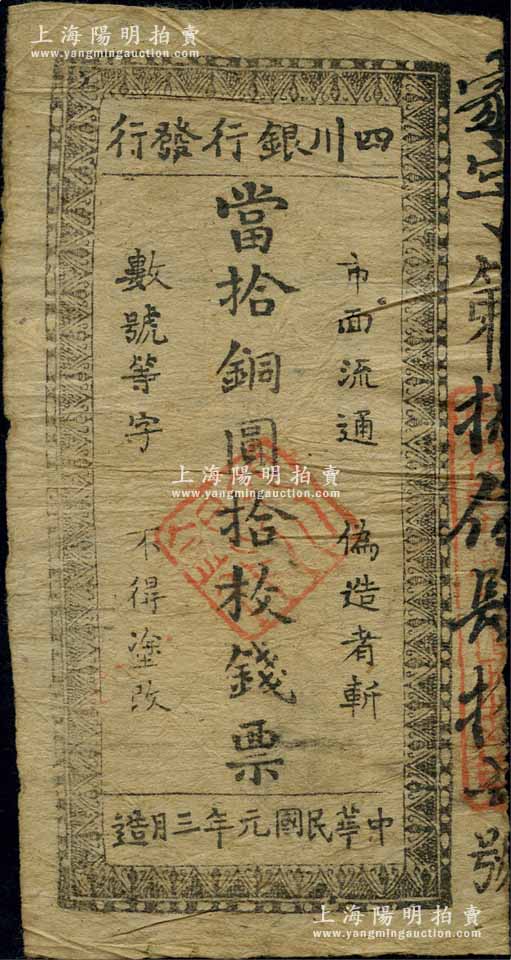 上海陽明拍賣
www.yangmingauction.com
四川銀行發行
當拾銅圓拾枚錢票
市面流通 偽造者斬
數號等字 不得塗改
中華民國元年三月造
上海陽明拍賣
www.yangmingauction.com
上海陽明拍賣
www.yangmingauction.com
字第
號